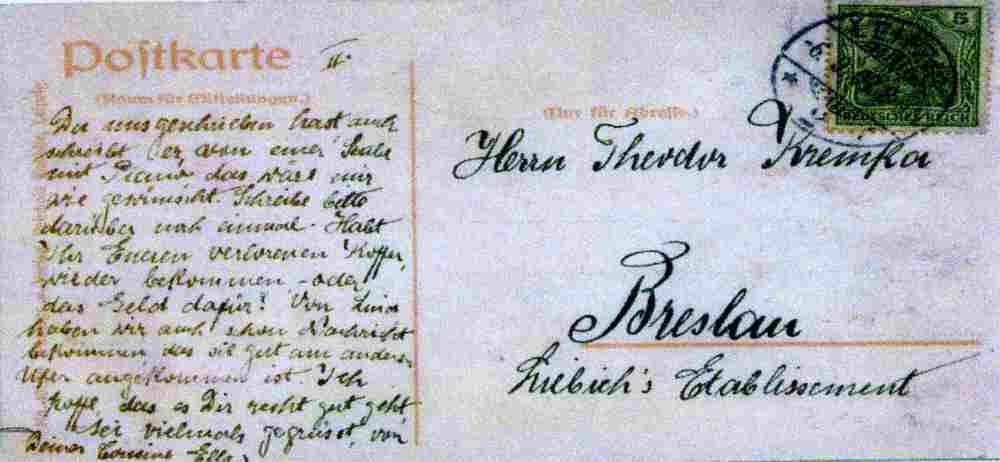 Postkarte
II.
(Raum für Mitteilungen.)
Du uns geschrieben hast auch
schreibt er von einer Stelle
mit Piano das wäre mir
wie gewünscht. Schreibe bitte
darüber noch einmal. Habt
Ihr Eueren verlorenen Koffer
wieder bekommen - oder
das Geld dafür? Von
haben wir auch schon Nachricht
bekommen das sie gut am anderen
Ufer angekommen ist. Ich
hoffe, das es Dir recht gut geht
Sei vielmals gegrüsst, von
Deiner Cousine Ella.
(Nur für Adresse.)
5
DEUTSCHES REICH
Herrn Theodor Kremka
Breslau
Liebich's Etablissement